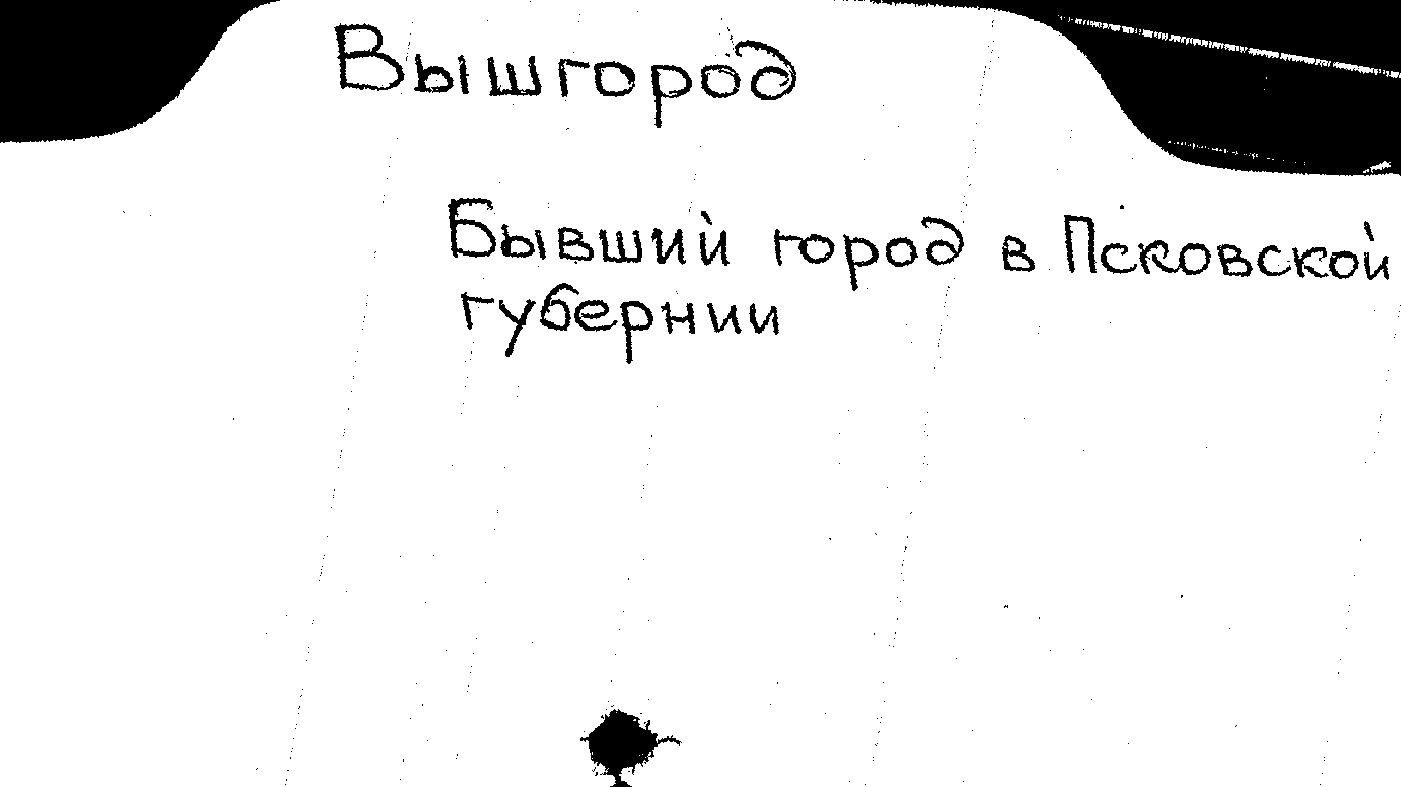 Вышгород
Бывший город в Псковской
губернии